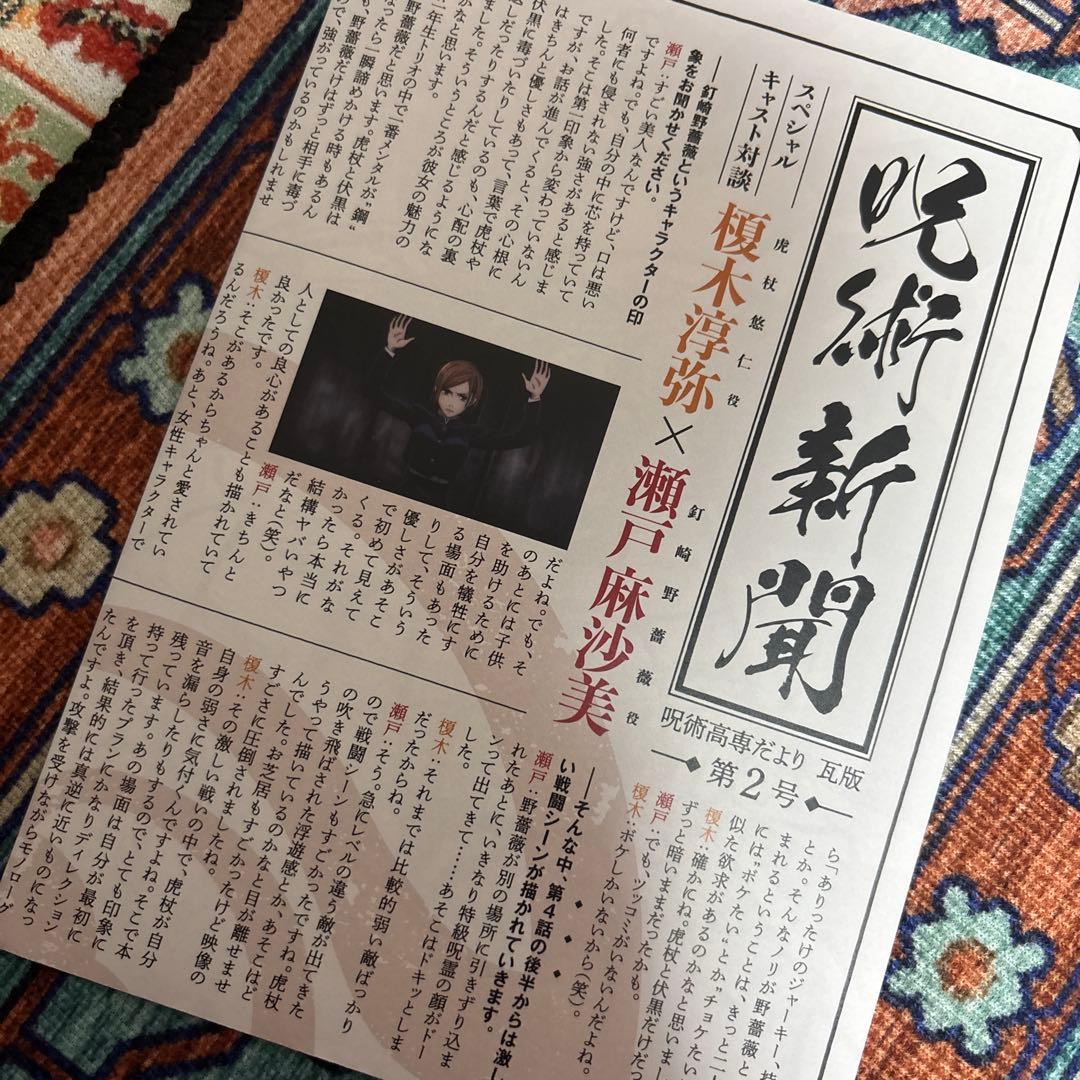 呪術新聞
呪術高専だより 瓦版
第2号
スペシャル
キャスト対談
虎杖悠仁役
榎木淳弥
×
釘崎野薔薇役
瀬戸麻沙美
──釘崎野薔薇というキャラクターの印
象をお聞かせください。
瀬戸:すごい美人なんですけど、口は悪い
ですよね。でも、自分の中に芯を持っていて
何者にも侵されない強さがあると感じま
した。そこは第一印象から変わっていないん
ですが、お話が進んでくると、その心根に
はきちんと優しさもあって、言葉で虎杖や
伏黒に毒づいたりしているのも、心配の裏
返しだったりするんだと感じるようにな
りました。そういうところが彼女の魅力の
かなと思います。
一年生トリオの中で一番メンタルが“鋼“
野薔薇だと思います。虎杖と伏黒は
なったら一瞬諦めかける時もあるん
も、野薔薇だけはずっと相手に毒づ
ので、強がっているのかもしれませ
だよね。でも、そ
のあとには子供
を助けるために
自分を犠牲にす
る場面もあった
りして、そういう
優しさがあそこ
で初めて見えて
くる。それがな
かったら本当に
結構ヤバいやつ
だなと(笑)。
瀬戸:きちんと
人としての良心があることも描かれていて
良かったです。
榎木:そこがあるからちゃんと愛されてい
るんだろうね。あと、女性キャラクターで
ら「ありったけのジャーキー、持
とか。そんなノリが野薔薇と
まれるということは、きっと二人
には“ボケたい”とか“チョケたい
似た欲求があるのかなと思いま
榎木:確かにね。虎杖と伏黒だけだっ
ずっと暗いままだったかも。
瀬戸:でも、ツッコミがいないんだよね。
榎木:ボケしかいないから(笑)。
──そんな中、第4話の後半からは激し
い戦闘シーンが描かれていきます。
瀬戸:野薔薇が別の場所に引きずり込ま
れたあとに、いきなり特級呪霊の顔がドー
ンって出てきて……あそこはドキッとしま
した。
榎木:それまでは比較的弱い敵ばっかり
だったからね。
瀬戸:そう。急にレベルの違う敵が出てきた
ので戦闘シーンもすごかったですね。虎杖
の吹き飛ばされた浮遊感とか、あそこはど
うやって描いているのかなと目が離せませ
んでした。お芝居もすごかったけど映像の
すごさに圧倒されましたね。
榎木:その激しい戦いの中で、虎杖が自分
自身の弱さに気付くんですよね。そこで本
音を漏らしたりもするので、とても印象に
残っています。あの場面は自分が最初に
持って行ったプランにかなりディレクション
を頂き、結果的には真逆に近いものになっ
たんですよ。攻撃を受けながらモノローグ